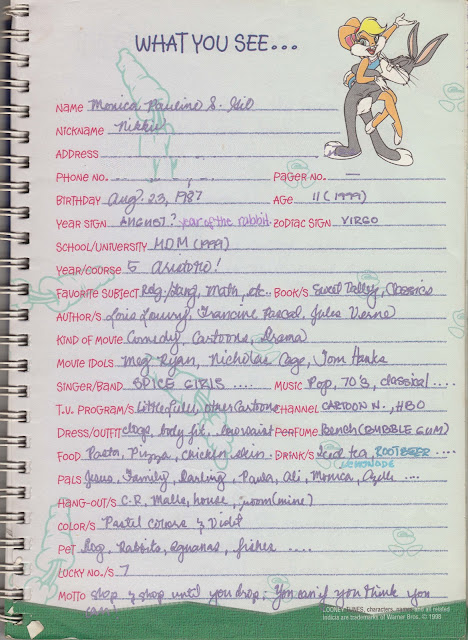 WHAT YOU SEE...
NAME Monica Paulino S. Gil
NICKNAME Nikki
ADDRESS
PHONE NO. PAGER NO. —
BIRTHDAY Aug. 23, 1987 AGE 11 (1999)
YEAR SIGN AUGUST? year of the rabbit ZODIAC SIGN VIRGO
SCHOOL/UNIVERSITY (1999)
YEAR/COURSE 5
FAVORITE SUBJECT Math, etc.. BOOK/S Sweet Valley, Classics
AUTHOR/S Lois Lowry, Francine Pascal, Jules Verne
KIND OF MOVIE Comedy, Cartoons, Drama
MOVIE IDOLS Meg Ryan, Nicholas Cage, Tom Hanks
SINGER/BAND SPICE GIRLS .... MUSIC Pop, 70's, classical ....
T.V. PROGRAM/S other Cartoons CHANNEL CARTOON N., HBO
DRESS/OUTFIT clogs, body fit, PERFUME Bench (BUBBLE GUM)
FOOD Pasta, Pizza, chicken skin. DRINK/S iced tea, ROOTBEER ....
LEMONADE
PALS Jesus, Family, Darling, Paula, Ali, Monica, ....
HANG-OUT/S C.R. Malls, house, room (mine)
COLOR/S Pastel colors & Violet
PET Dog, Rabbits, iguanas, fishes ....
LUCKY NO./S 7
MOTTO shop & shop until you drop; You can if you think you
LOONEY TUNES, characters, names, and all related
indicia are trademarks of Warner Bros. © 1998